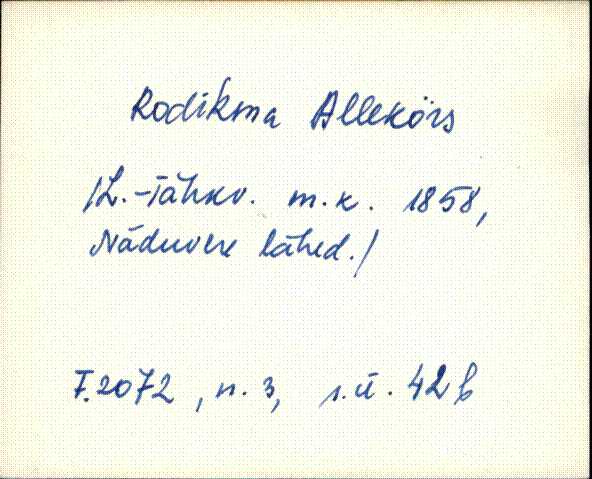 Rodikma Allekõrs
/L.-Tähkv. m.k. 1858,
Näduvere lähed./
F.2072, n. 3, s.ü. 42 b